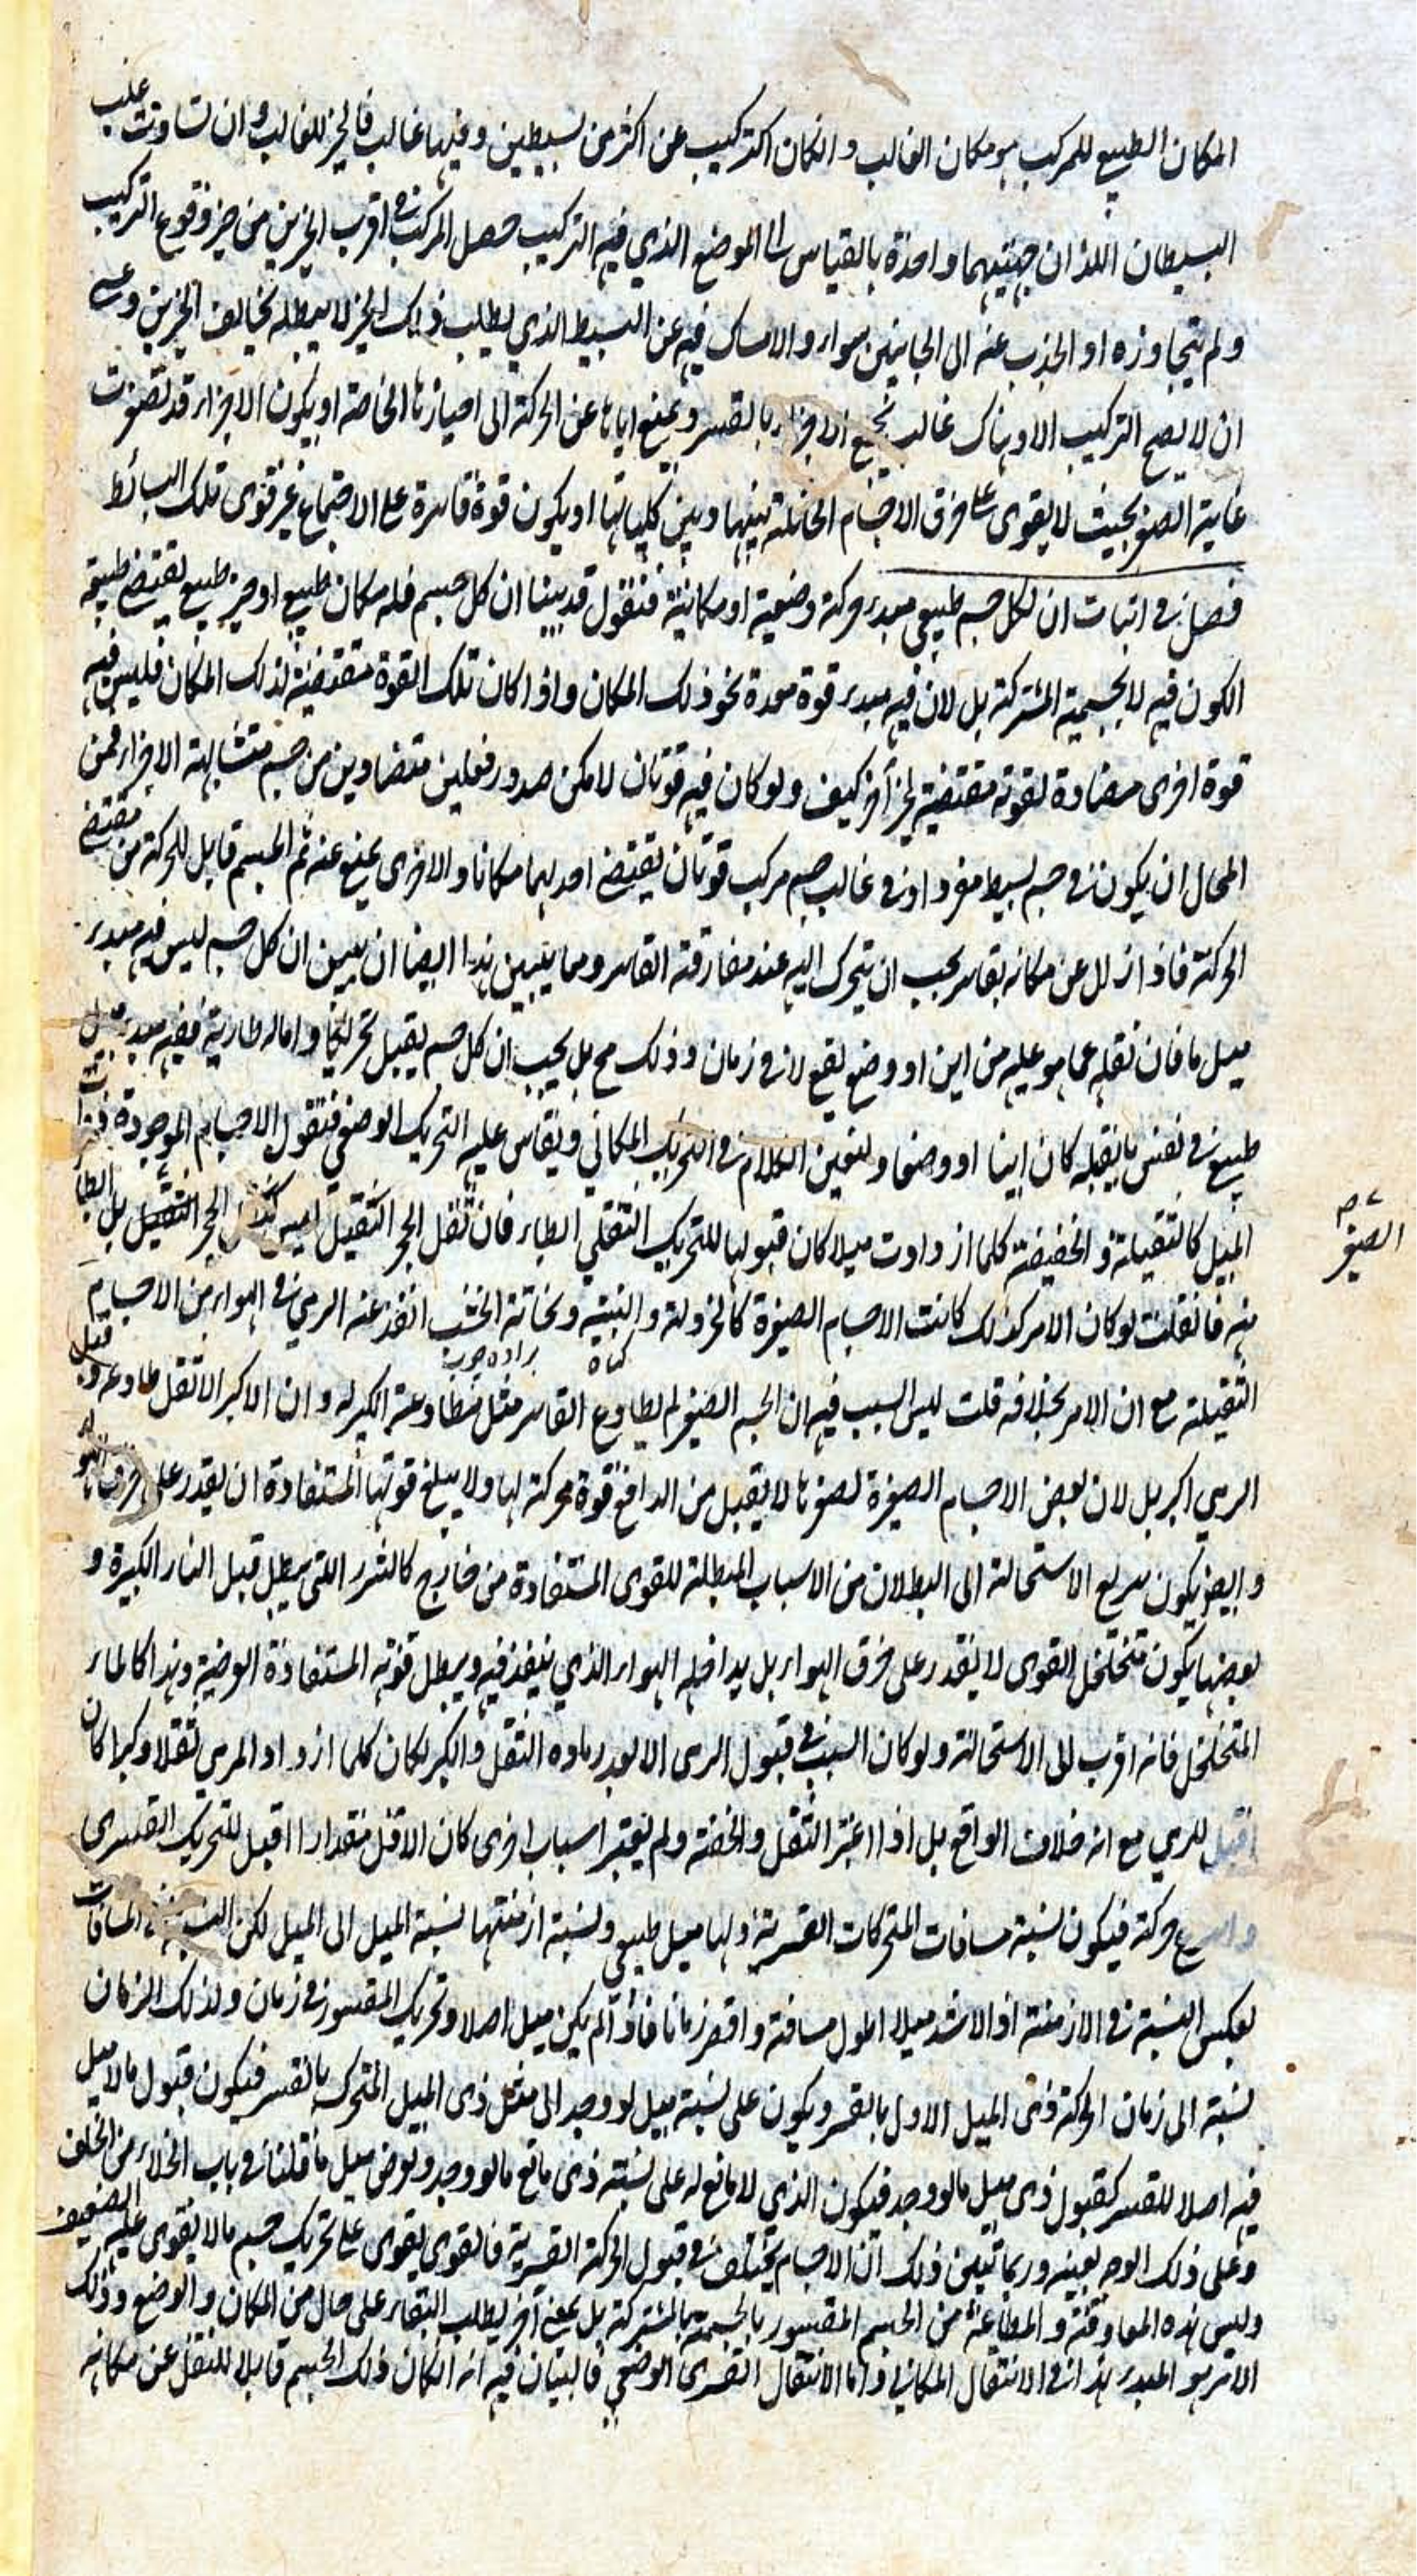 المكان الطبيع للمركب هو مكان الغالب وانكان التركيب عن اكثر من بسيطين وفيها غالب فالحيز للغالب وان تساوت غلب
البسيطان اللذان جهتيهما واحدة بالقياس الى الموضع الذي فيه التركيب حصل المركب في اقرب الحيزين من حيز وقوع التركيب
ولم يتجاوزه او الجذب عنه الى الجانبين سواء والامساك فيه عن البسيط الذي يطلب ذلك الحيز لا يبطله تخالف الحيزين وعسى
ان لا يصح التركيب الا وهناك غالب يجمع الاجزاء بالقسر ويمنع اياها عن الحركة الى احيازها الخاصة او يكون الاجزاء قد تصغرت
غاية الصغر بحيث لا يقوى على خرق الاجسام الحائلة بينها وبين كلياتها او يكون قوة قاسرة على الاجتماع غير قوى تلك البسائط
فصل في اثبات ان لكل جسم طبيعي مبدء حركة وضعية او مكانية فنقول قد بينا ان كل جسم فله مكان طبيع او حيز طبيع يقتضى طبيعة
الكون فيه لا بجسمية المشتركة بل لان فيه مبدء قوة معدة نحو ذلك المكان واذا كان تلك القوة مقتضية لذلك المكان فليس فيه
قوة اخرى مضادة لقوته مقتضية لحيز آخر كيف ولو كان فيه قوتان لامكن صدور فعلين متضادين من جسم متشابهة الاجزاء فمن
المحال ان يكون في جسم بسيط مفرد او في غالب جسم مركب قوتان يقتضى احديهما مكانا والاخرى يمنع عنه ثم الجسم قابل للحركة من مقتضى
الحركة فاذا زال عن مكانه بقاسر يجب ان يتحرك اليه عند مفارقة القاسر ومما يتبين بهذا ايضا ان يبين ان كل جسم ليس فيه مبدء
ميل ما فان نقله عما هو عليه من اين او وضع يقع لا في زمان وذلك مح بل يجب ان كل جسم يقبل تحريكا وامالة طارية ففيه مبدء ميل
طبيع في نفس ما يقبله كان اينا او وضعا ولنعين الكلام في التحريك المكاني ويقاس عليه التحريك الوضعي فنقول الاجسام الموجودة ذوات
الميل كالثقيلة والخفيفة كلما ازدادت ميلا كان قبولها للتحريك البطاء فان نقل الحجر الثقيل ليس كنقل الحجر الصغير
منه فان قلت لو كان الامر كذلك كانت الاجسام الصغيرة كالخردلة والتبنة ونحاتة الخشب انفذ عند الرمي في الهواء من الاجسام
كاه براده چوب
الثقيلة مع ان الامر بخلافه قلت ليس السبب فيه ان الجسم الصغير لم يطاوع القاسر مثل مطاوعة الكبير له وان الاكبر الاثقل مطاوعه وقبل
الرمي اكبر بل لان بعض الاجسام الصغيرة لصغرها لا يقبل من الدافع قوة محركة لها ولا يبلغ قوتها المستفادة ان يقدر على خرق الهواء
وايضا يكون سريع الاستحالة الى البطلان من الاسباب المبطلة للقوى المستفادة من خارج كالشرر التي يبطل قبل النار الكبيرة و
بعضها يكون متخلخل القوى لا يقدر على خرق الهواء بل يداخله الهواء الذي ينفذ فيه ويبطل قوته المستفادة العرضية وهذا كالماء
المتخلخل فانه اقرب الى الاستحالة ولو كان السبب في قبول الرمى الابعد زيادة الثقل والكبر لكان كلما ازداد المرمى ثقلا وكبرا كان
اقبل للرمي مع انه خلاف الواقع بل اذا اعتبر الثقل والخفة ولم يعتبر اسباب اخرى كان الاقل مقدارا اقبل للتحريك القسرى
واسرع حركة فيكون نسبة مسافات المتحركات القسرية ولها ميل طبيعي ونسبة ازمنتها نسبة الميل الى الميل لكن النسبة في المسافات
بعكس النسبة في الازمنة اذ الاشد ميلا اطول مسافة واقصر زمانا فاذا لم يكن ميل اصلا وتحريك المقسور في زمان ولذلك الزمان
نسبة الى زمان الحركة ذى الميل الاول بالقسر ويكون على نسبة ميل لو وجد الى مثل ذى الميل المتحرك بالقسر فيكون قبول ما لا ميل
فيه اصلا للقسر كقبول ذى ميل ما لو وجد فيكون الذي لا مانع له على نسبة ذى مانع ما لو وجد ويعرض مثل ما قلنا في باب الخلاء من الخلف
وعلى ذلك الوجه بعينه وربما تبين ذلك ان الاجسام يختلف في قبول الحركة القسرية فالقوى يقوى على تحريك جسم ما لا يقوى عليه الضعيف
وليس هذه المعاوقة والممانعة من الجسم المقسور بالجسمية المشتركة بل بمعنى آخر يطلب البقاء على حال من المكان والوضع وذلك
الامر هو المبدء هذا في الانتقال المكاني واما الانتقال القسرى الوضعي فالبيان فيه انه انكان ذلك الجسم قابلا للنقل عن مكانه
الصغير